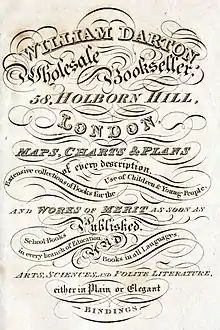 WILLIAM DARTON
Wholesale Bookseller,
58, HOLBORN HILL,
LONDON
MAPS, CHARTS & PLANS
of every description,
Extensive collections of Books for the Use of Children & Young People.
AND WORKS OF MERIT AS SOON AS
Published.
School Books in every branch of Education
AND
Books in all Languages,
ARTS, SCIENCES, AND POLITE LITERATURE,
either in Plain or Elegant
BINDINGS.